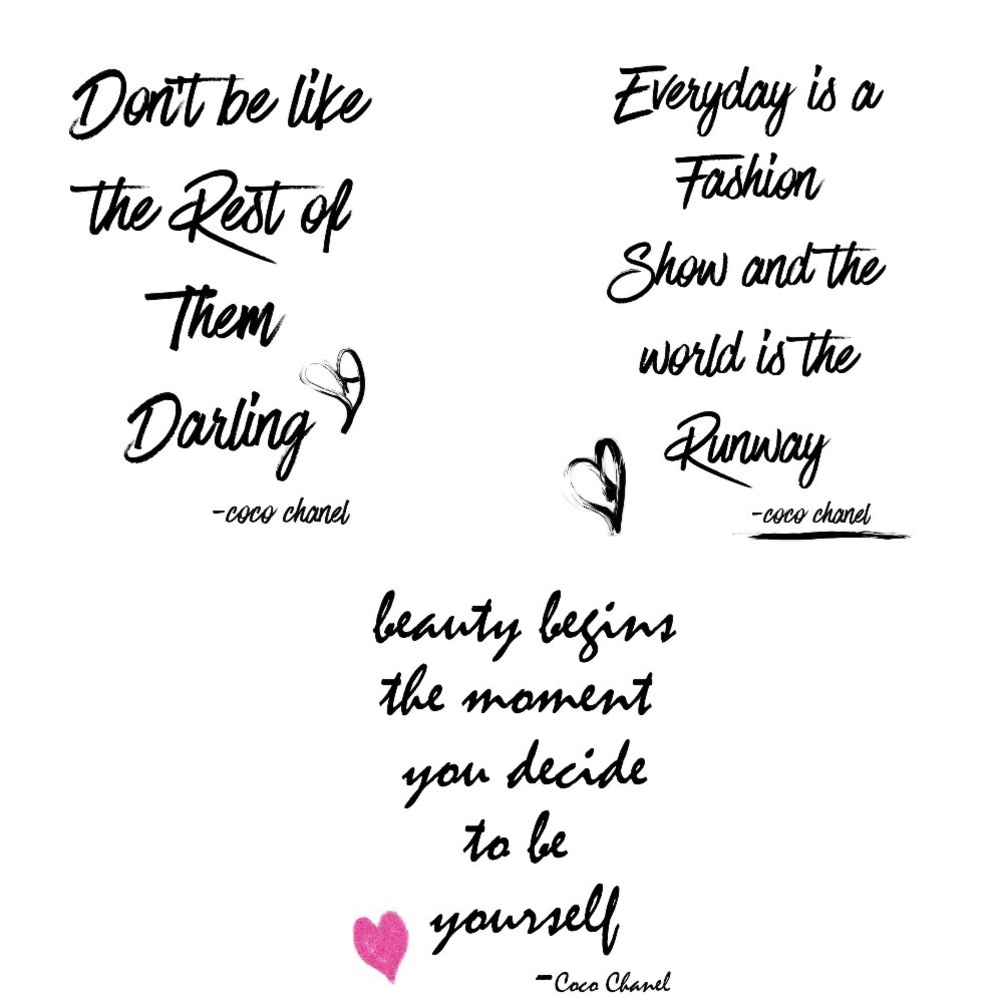 Don't be like
the Rest of
Them
Darling
-coco chanel
Everyday is a
Fashion
Show and the
world is the
Runway
-coco chanel
beauty begins
the moment
you decide
to be
yourself
-Coco Chanel